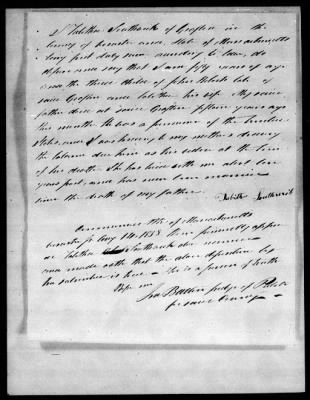 I Tabitha Southwick of Grafton in the
County of Worcester and State of Massachusetts
being first duly sworn according to law, do
depose and say that I am fifty years of age
and the third child of John Roberts late of
said Grafton and Tabitha his wife. My said
father died at said Grafton fifteen years ago
this month. He was a pensioner of the United
States, and I was knowing to my mother's drawing
the balance due him as his widow at the time
of his death. She has lived with me about ten
years past, and has never been married
since the death of my father.
Tabitha Southwick
Commonwealth of Massachusetts
Worcester ss Aug 14. 1838 then personally appeared
Tabitha Southwick above named
and made oath that the above deposition by
her subscribed is true. She is a person of truth
Before me
Ira Barton Judge of Probate
for said County